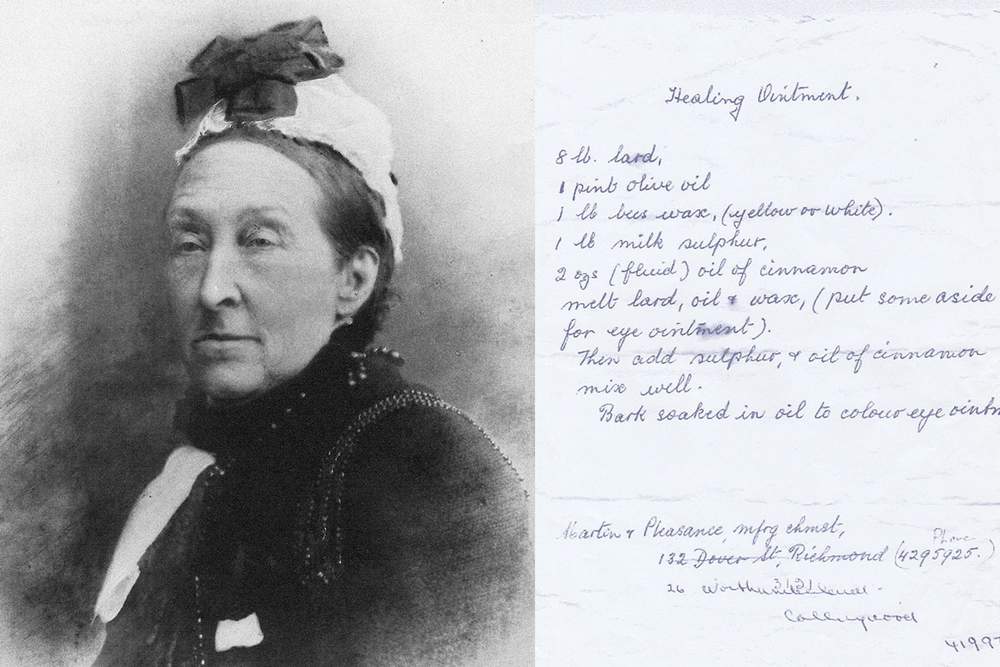 Healing Ointment.
8 lb. lard,
1 pint olive oil
1 lb bees wax, (yellow or white).
1 lb milk sulphur,
2 ozs (fluid) oil of cinnamon
melt lard, oil & wax, (put some aside
for eye ointment).
Then add sulphur, & oil of cinnamon
mix well.
Bark soaked in oil to colour eye ointm
Martin & Pleasance, mfrg chmst,
Phone
132 Dover St, Richmond (4295925.)
26
Collingwood